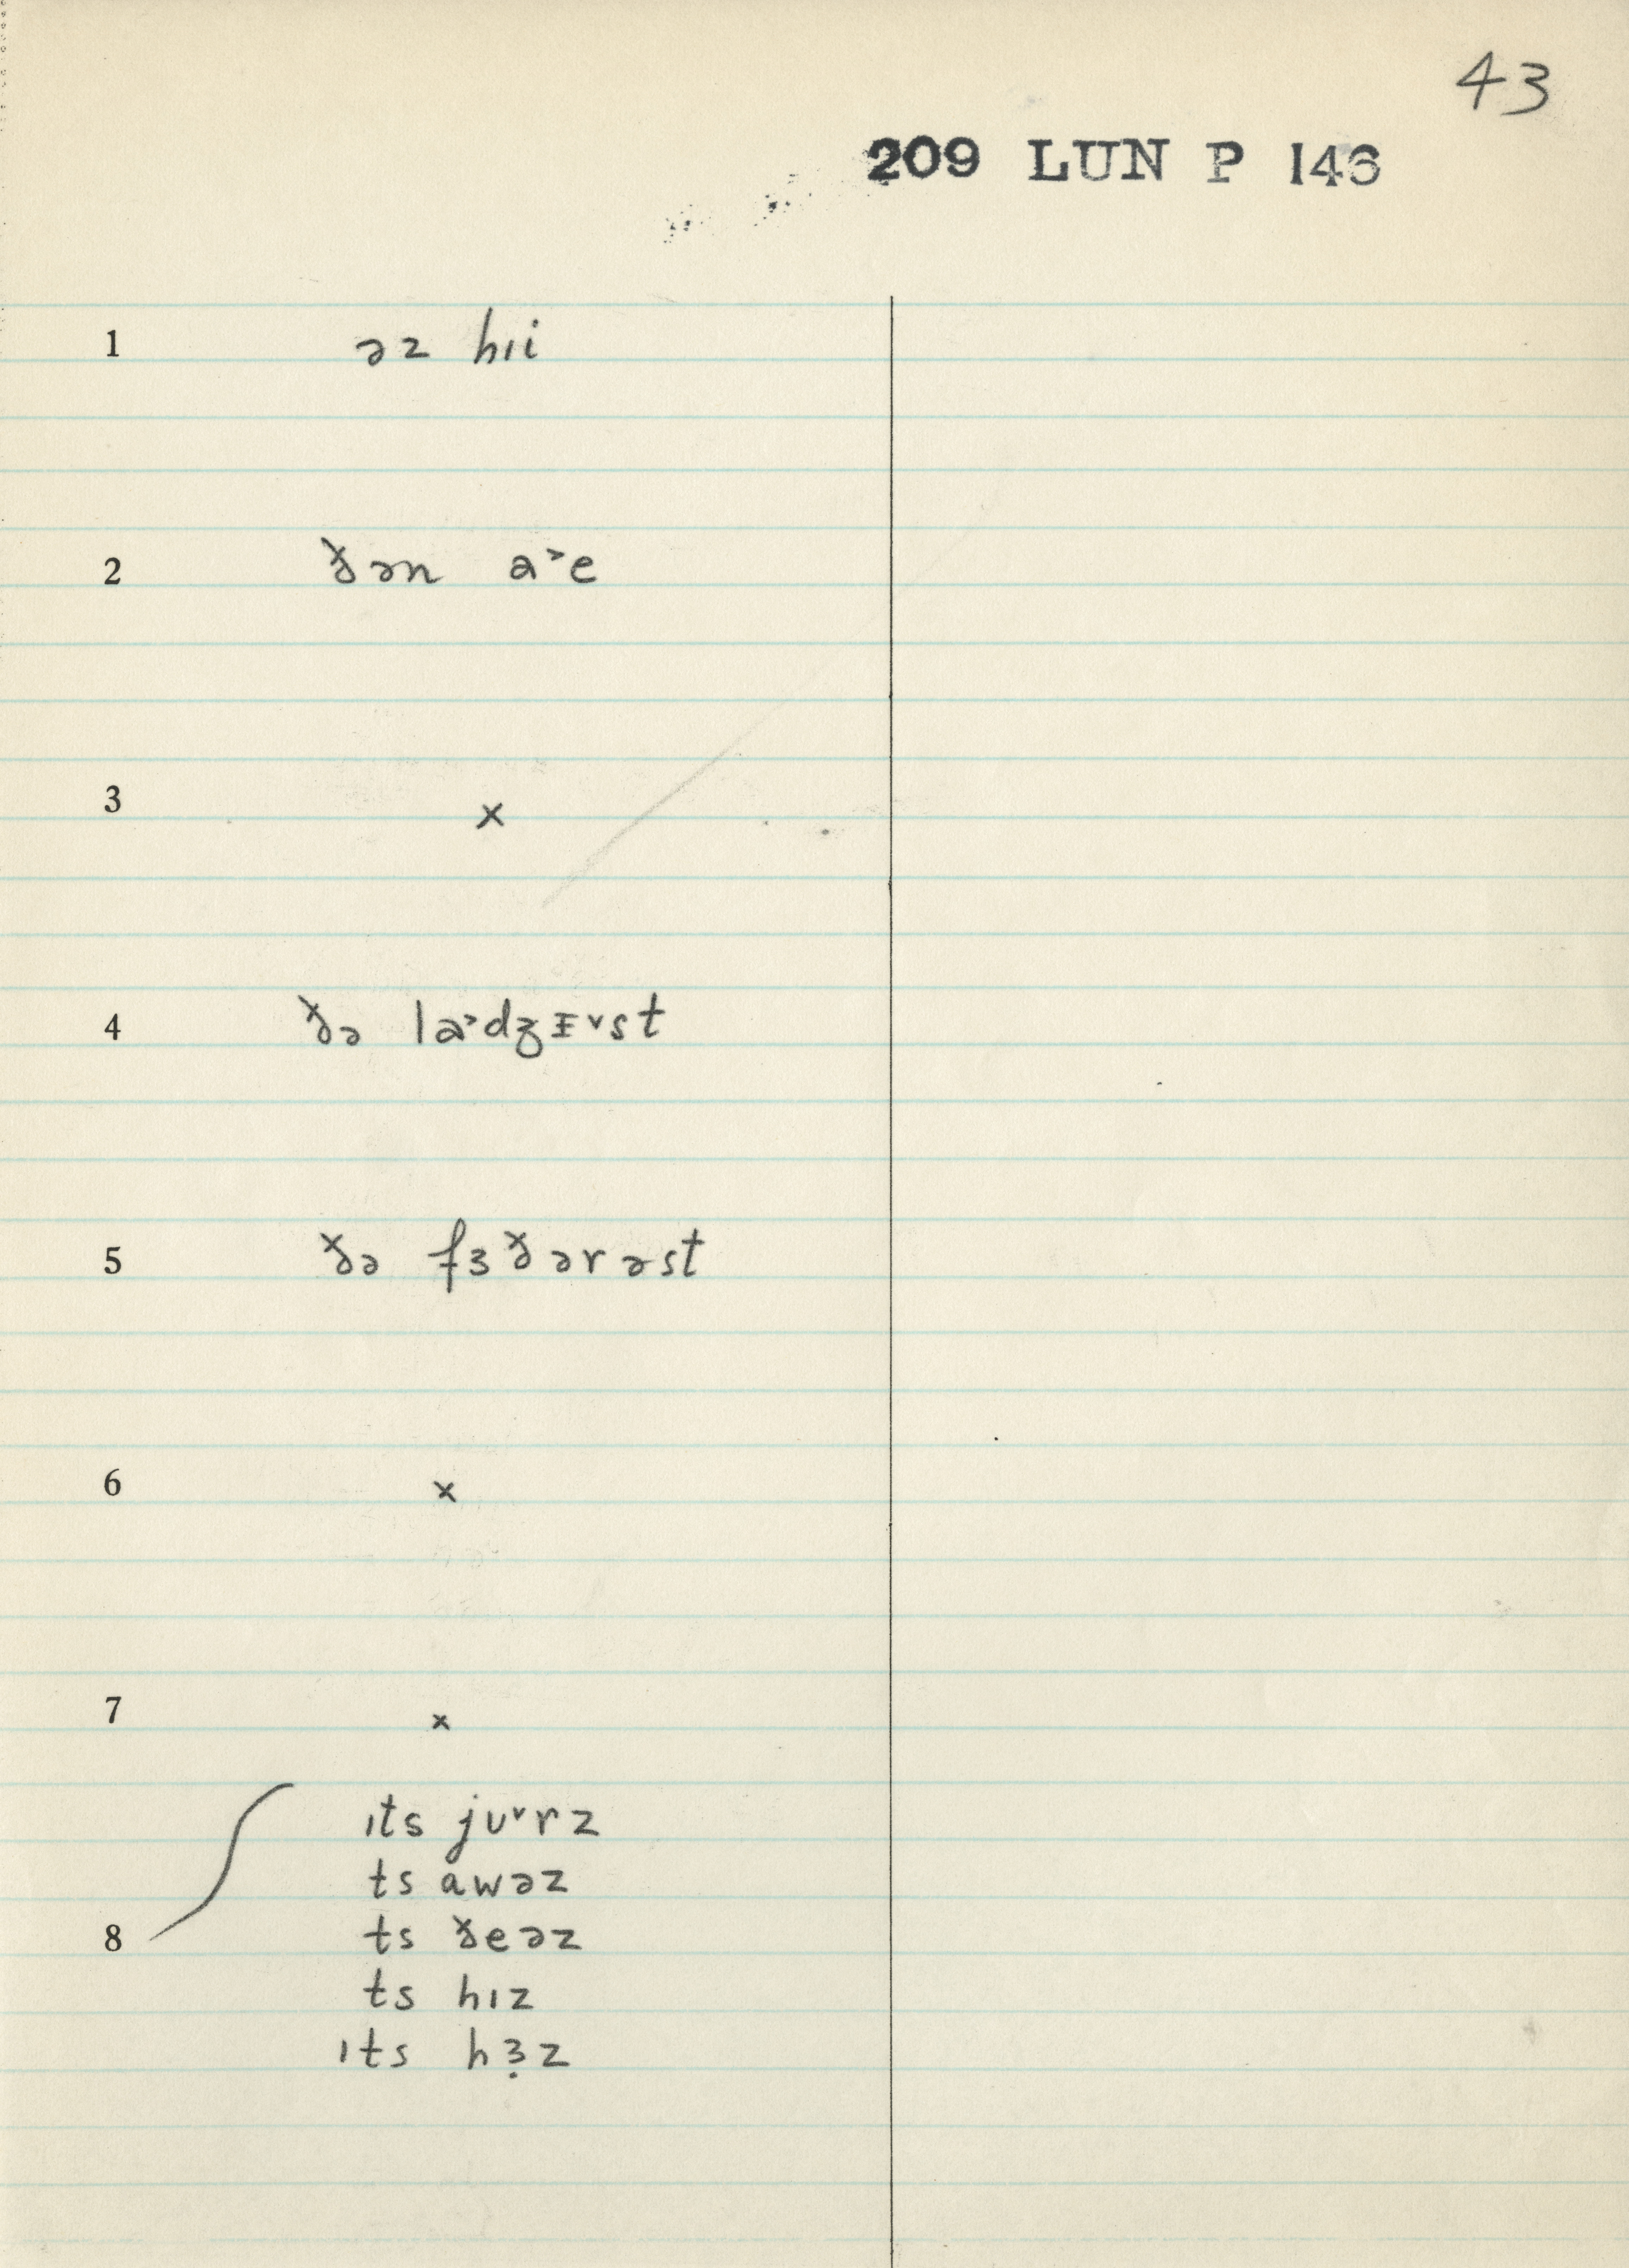 43
209 LUN P 146
1 əz hɪi
2 ð̌ən a˃e
3 ×
4 ð̌ə la˃dʒᵻ˅st
5 ð̌ə fɜð̌ərəst
6 ×
7 ×
ɪts jʊ˅rz
ts awəz
8 ts ð̌eəz
ts hɪz
ɪts hɜ̣z